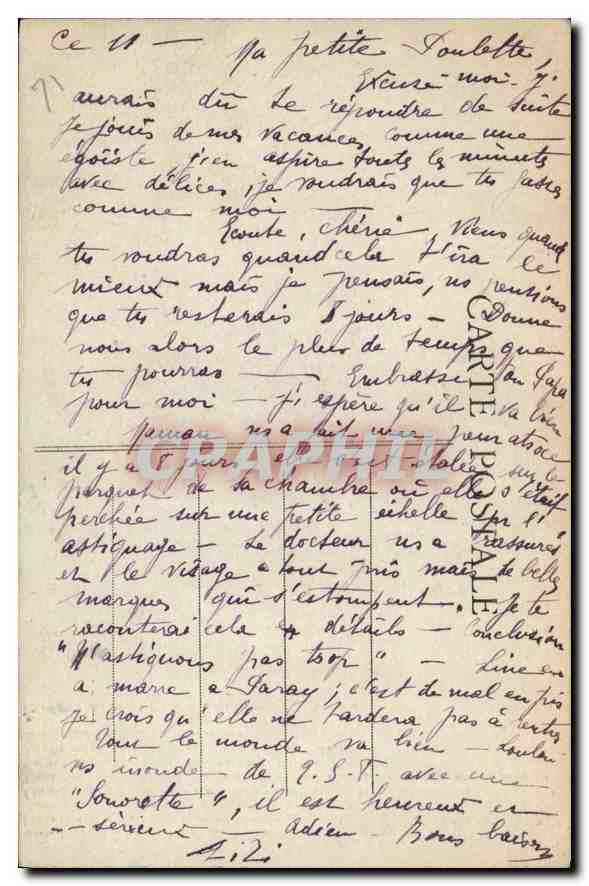 Ce 11 — Ma petite Poulette
Excuse moi. j'
aurais dû te répondre de suite
je jouis de mes vacances comme une
égoïste j'en aspire toutes les minutes
avec délices, je voudrais que tu fasses
comme moi —
Ecoute, chérie, viens quand
tu voudras quand cela t'ira le
mieux mais je pensais, ns pensions
que tu resterais 8 jours — Donne
nous alors le plus de temps que
tu pourras — Embrasse ton Papa
pour moi — j'espère qu'il va bien
Maman ns a fait une peur atroce
il y a 8 jours elle s'est étalée sur le
parquet de sa chambre où elle s'était
perchée sur une petite échelle pr l'
astiquage — Le docteur ns a rassurés
et le visage a tout pris mais de belles
marques qui s'estompent. Je te
raconterai cela en détails — Conclusion
"N'astiquons pas trop" — Line en
a marre a Paray ; c'est de mal en pis
je crois qu'elle ne tardera pas à rentrer
Tout le monde va bien —
ns inonde de T.S.F. avec une
"Sonorette", il est heureux et
sérieux — Adieu — Bons baisers
Zizi
CARTE POSTALE
CPAPHIL